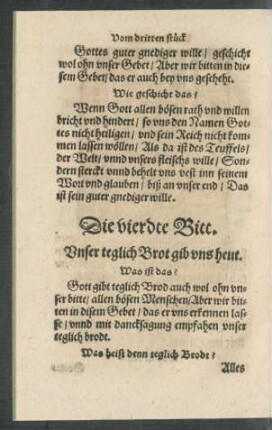 Vom dritten stück
Gottes guter gnediger wille / geschicht
wol ohn vnser Gebet / Aber wir bitten in die-
sem Gebet / das er auch bey vns geschehe.
Wie geschicht das?
Wenn Gott allen bösen rath vnd willen
bricht vnd hindert / so vns den Namen Got-
tes nicht heiligen / vnd sein Reich nicht kom-
men lassen wöllen / Als da ist des Teuffels /
der Welt / vnnd vnsers fleischs wille / Son-
dern sterckt vnnd behelt vns vest inn seinem
Wort vnd glauben / biß an vnser end / Das
ist sein guter gnediger wille.
Die vierdte Bitt.
Vnser teglich Brot gib vns heut.
Was ist das?
Gott gibt teglich Brod auch wol ohn vn-
ser bitte / allen bösen Menschen / Aber wir bit-
ten in disem Gebet / das er vns erkennen las-
se / vnnd mit dancksagung empfahen vnser
teglich brodt.
Was heist denn teglich Brodt?
Alles